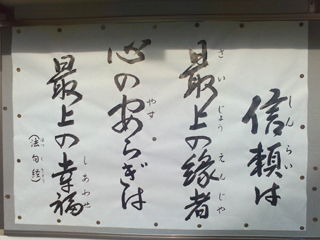 信頼は
しんらい
最上の縁者
さいじょう えんじゃ
心の安らぎは
やす
最上の幸福
しあわせ
(法句経)